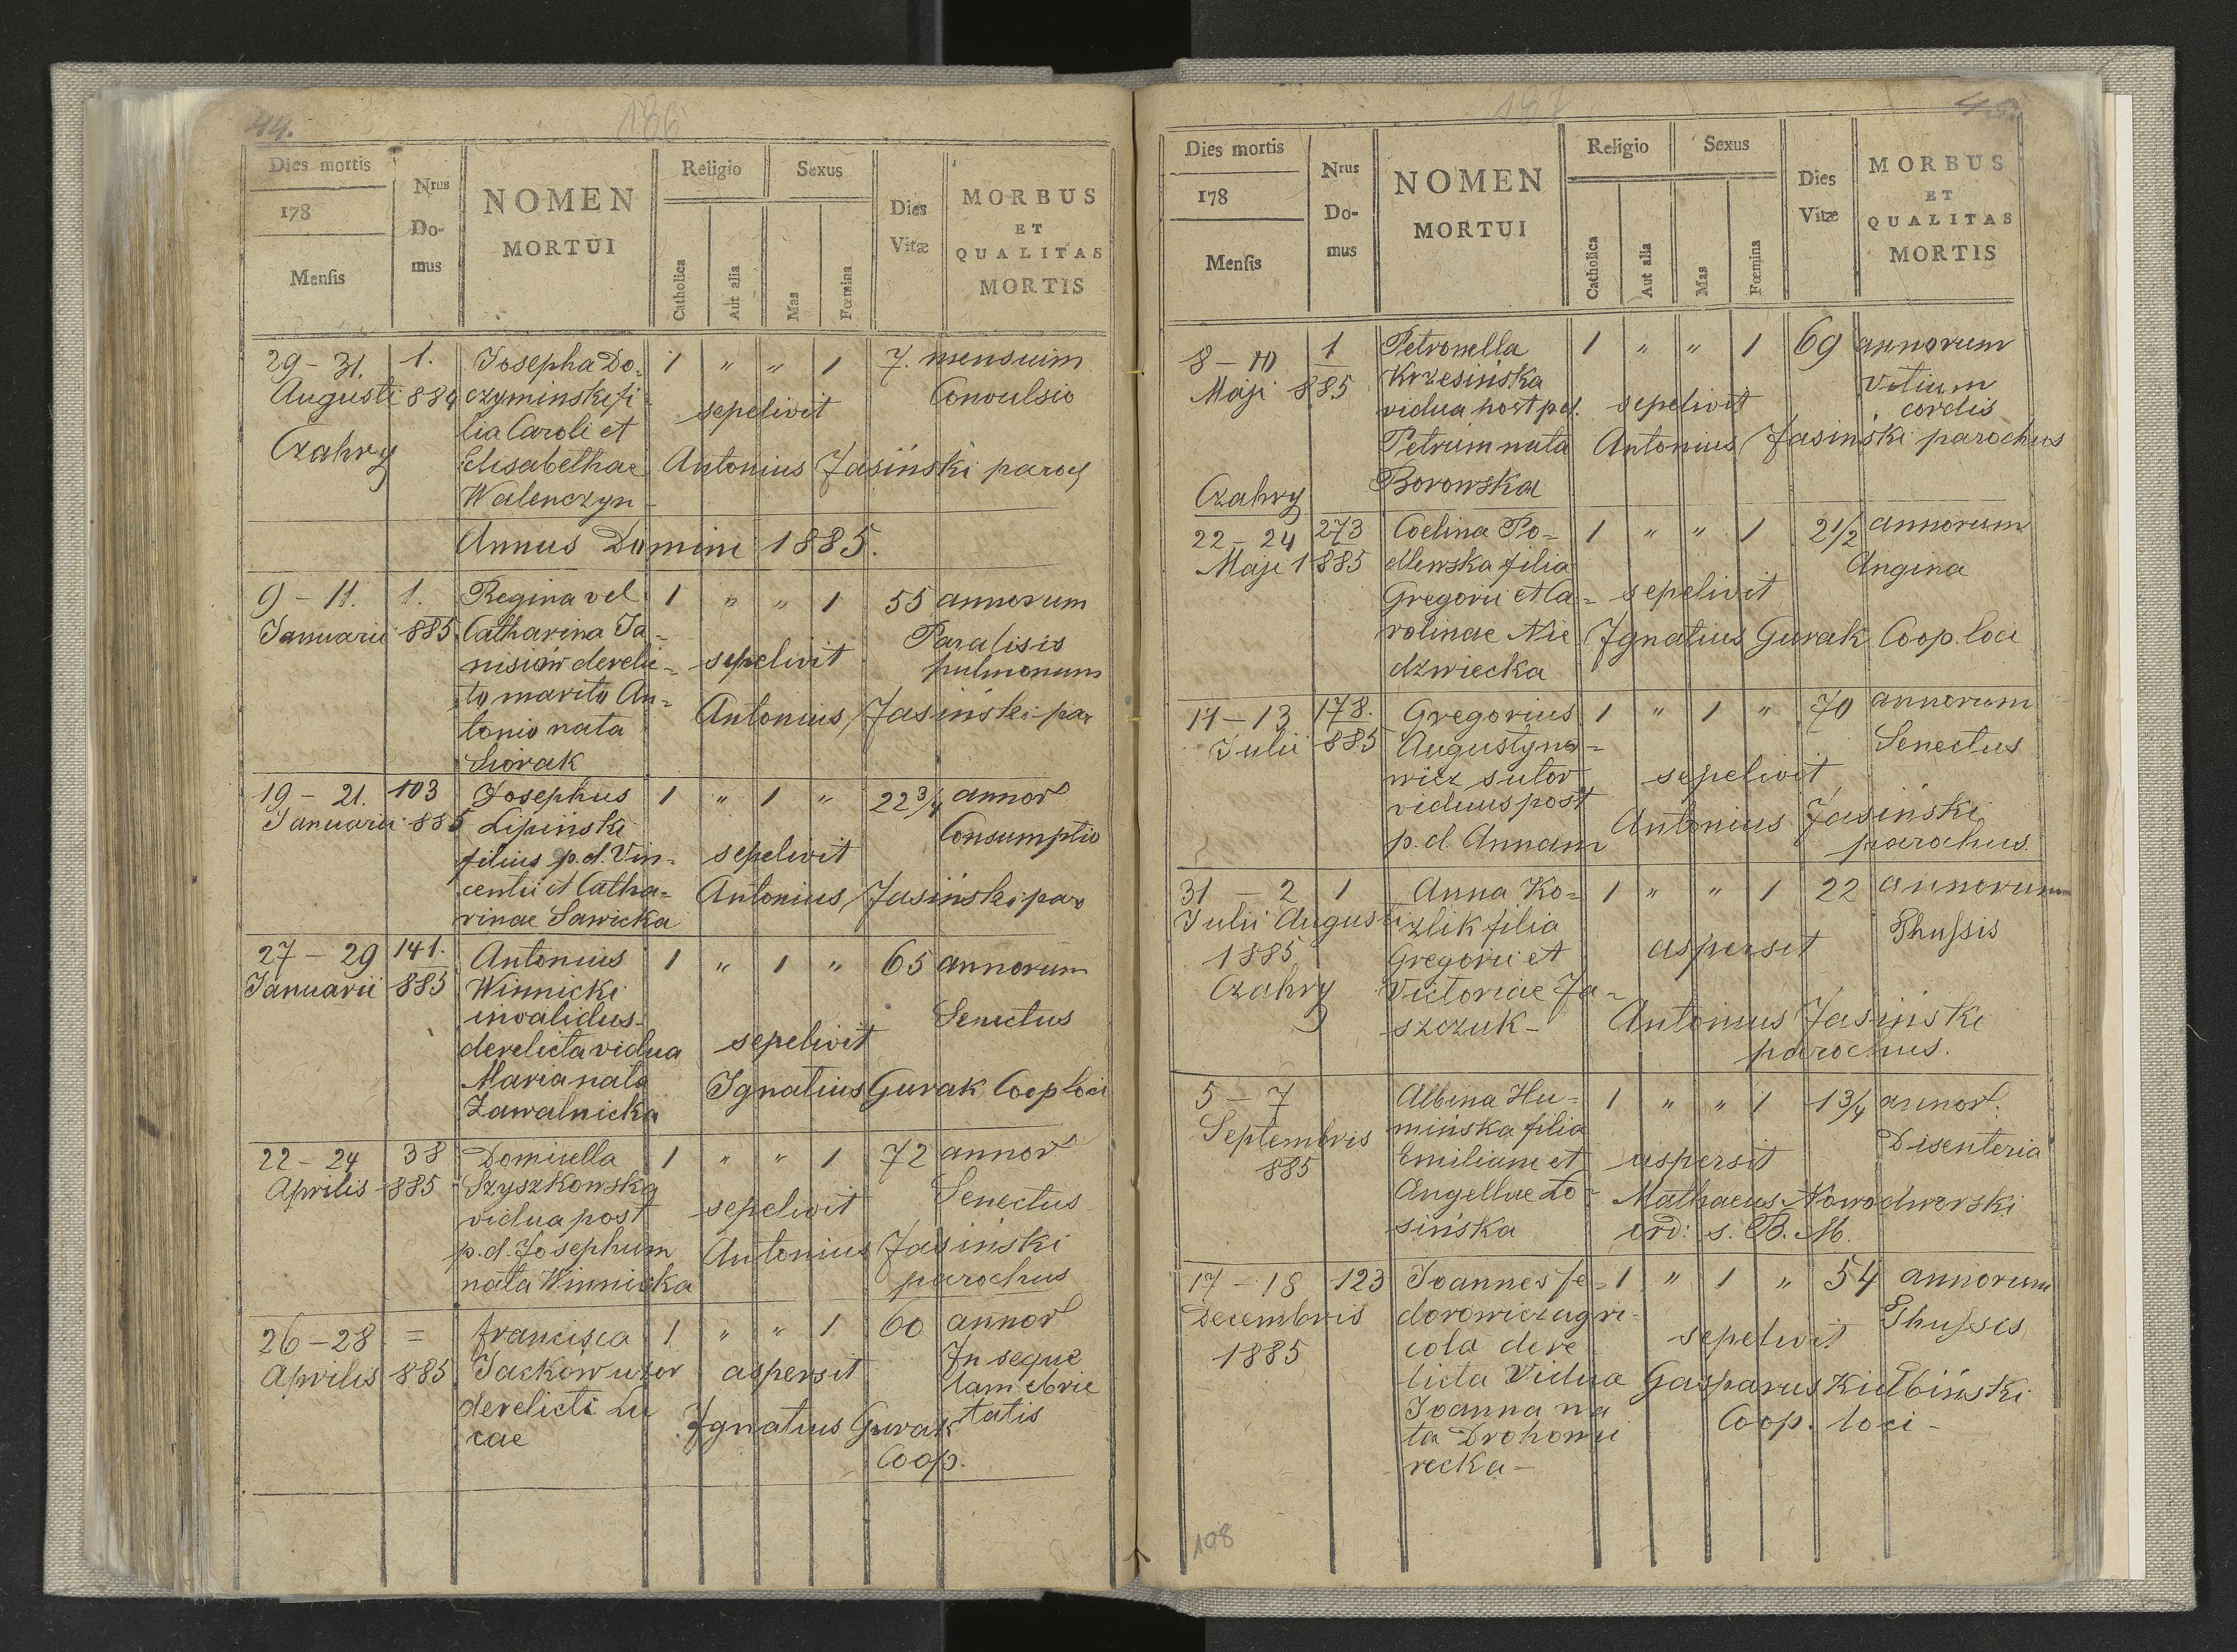 44.
186
Dies mortis
178
Mensis
Nrus
Do-
mus
NOMEN
MORTUI
Religio
Catholica
Aut alia
Sexus
Mas
Fœmina
Dies
Vitæ
MORBUS
ET
QUALITAS
MORTIS
29 - 31. 1. Josepha Do= 1 " " 1 7. mensuim
Augusti 884 czyminski fi= sepelivit Convulsio
lia Caroli et
Czahry Elisabethae Antonius Jasiński paroch
Walenczyn
Annus Domini 1885.
9 - 11. 1. Regina vel 1 " " 1 55 annorum
Januarii 885 Catharina Ja= Paralisis
nisiów derelic= sepelivit pulmonum
to marito An=
tonio nata Antonius Jasiński par
Siorak
19 - 21. 103 Josephus 1 " 1 " 22 3/4 annor
Januarii 885 Lipiński Consumptio
filius p.d. Vin= sepelivit
centii et Catha= Antonius Jasiński par
rinae Sawicka
27 - 29 141. Antonius 1 " 1 " 65 annorum
Januarii 885 Winnicki
invalidus Senectus
derelicta vidua sepelivit
Maria nata Ignatius Gurak Coop loci
Zawalnicka
22 - 24 38 Domicella 1 " " 1 72 annor
Aprilis 885 Szyszkowska Senectus
vidua post sepelivit
p.d. Josephum Antonius Jasiński
nata Winnicka parochus
26 - 28 = Francisca 1 " " 1 60 annor
Aprilis 885 Jackow uxor aspersit In seque
derelicti Lu lam ebrie
cae Ignatius Gurak tatis
Coop.
187
45.
Dies mortis
178
Mensis
Nrus
Do-
mus
NOMEN
MORTUI
Religio
Catholica
Aut alia
Sexus
Mas
Fœmina
Dies
Vitæ
MORBUS
ET
QUALITAS
MORTIS
8 - 10 1 Petronella 1 " " 1 69 annorum
Maji 885 Krzesińska Vitium
vidua post pd. sepelivit cordis
Petrum nata Antonius Jasiński parochus
Czahry Borowska
22 - 24 273 Coelina Po= 1 " " 1 2 1/2 annorum
Maji 1885 dlewska filia Angina
Gregorii et Ca= sepelivit
rolinae Nie Ignatius Gurak Coop. loci
dzwiecka
11 - 13 178. Gregorius 1 " 1 " 70 annorum
Julii 885 Augustyno= Senectus
wicz sutor sepelivit
viduus post Antonius Jasiński
p.d. Annam parochus.
31 - 2 1 Anna Ko= 1 " " 1 22 annorum
Julii Augusti zlik filia Thussis
1885 Gregorii et aspersit
Czahry Victoriae Ja=
szczuk - Antonius Jasiński
parochus.
5 - 7 Albina Hu= 1 " " 1 1 3/4 annor.
Septembris mińska filia Disenteria
885 Emiliani et aspersit
Angellae Ło= Mathaeus Nowodworski
sińska ord: s. B. M.
17 - 18 123 Joannes Fe= 1 " 1 " 54 annorum
Decembris dorowicz agri= Thussis
1885 cola dere sepelivit
licta Vidua Gasparus Kiełbiński
Joanna na Coop. loci -
ta Drohomi
recka -
198